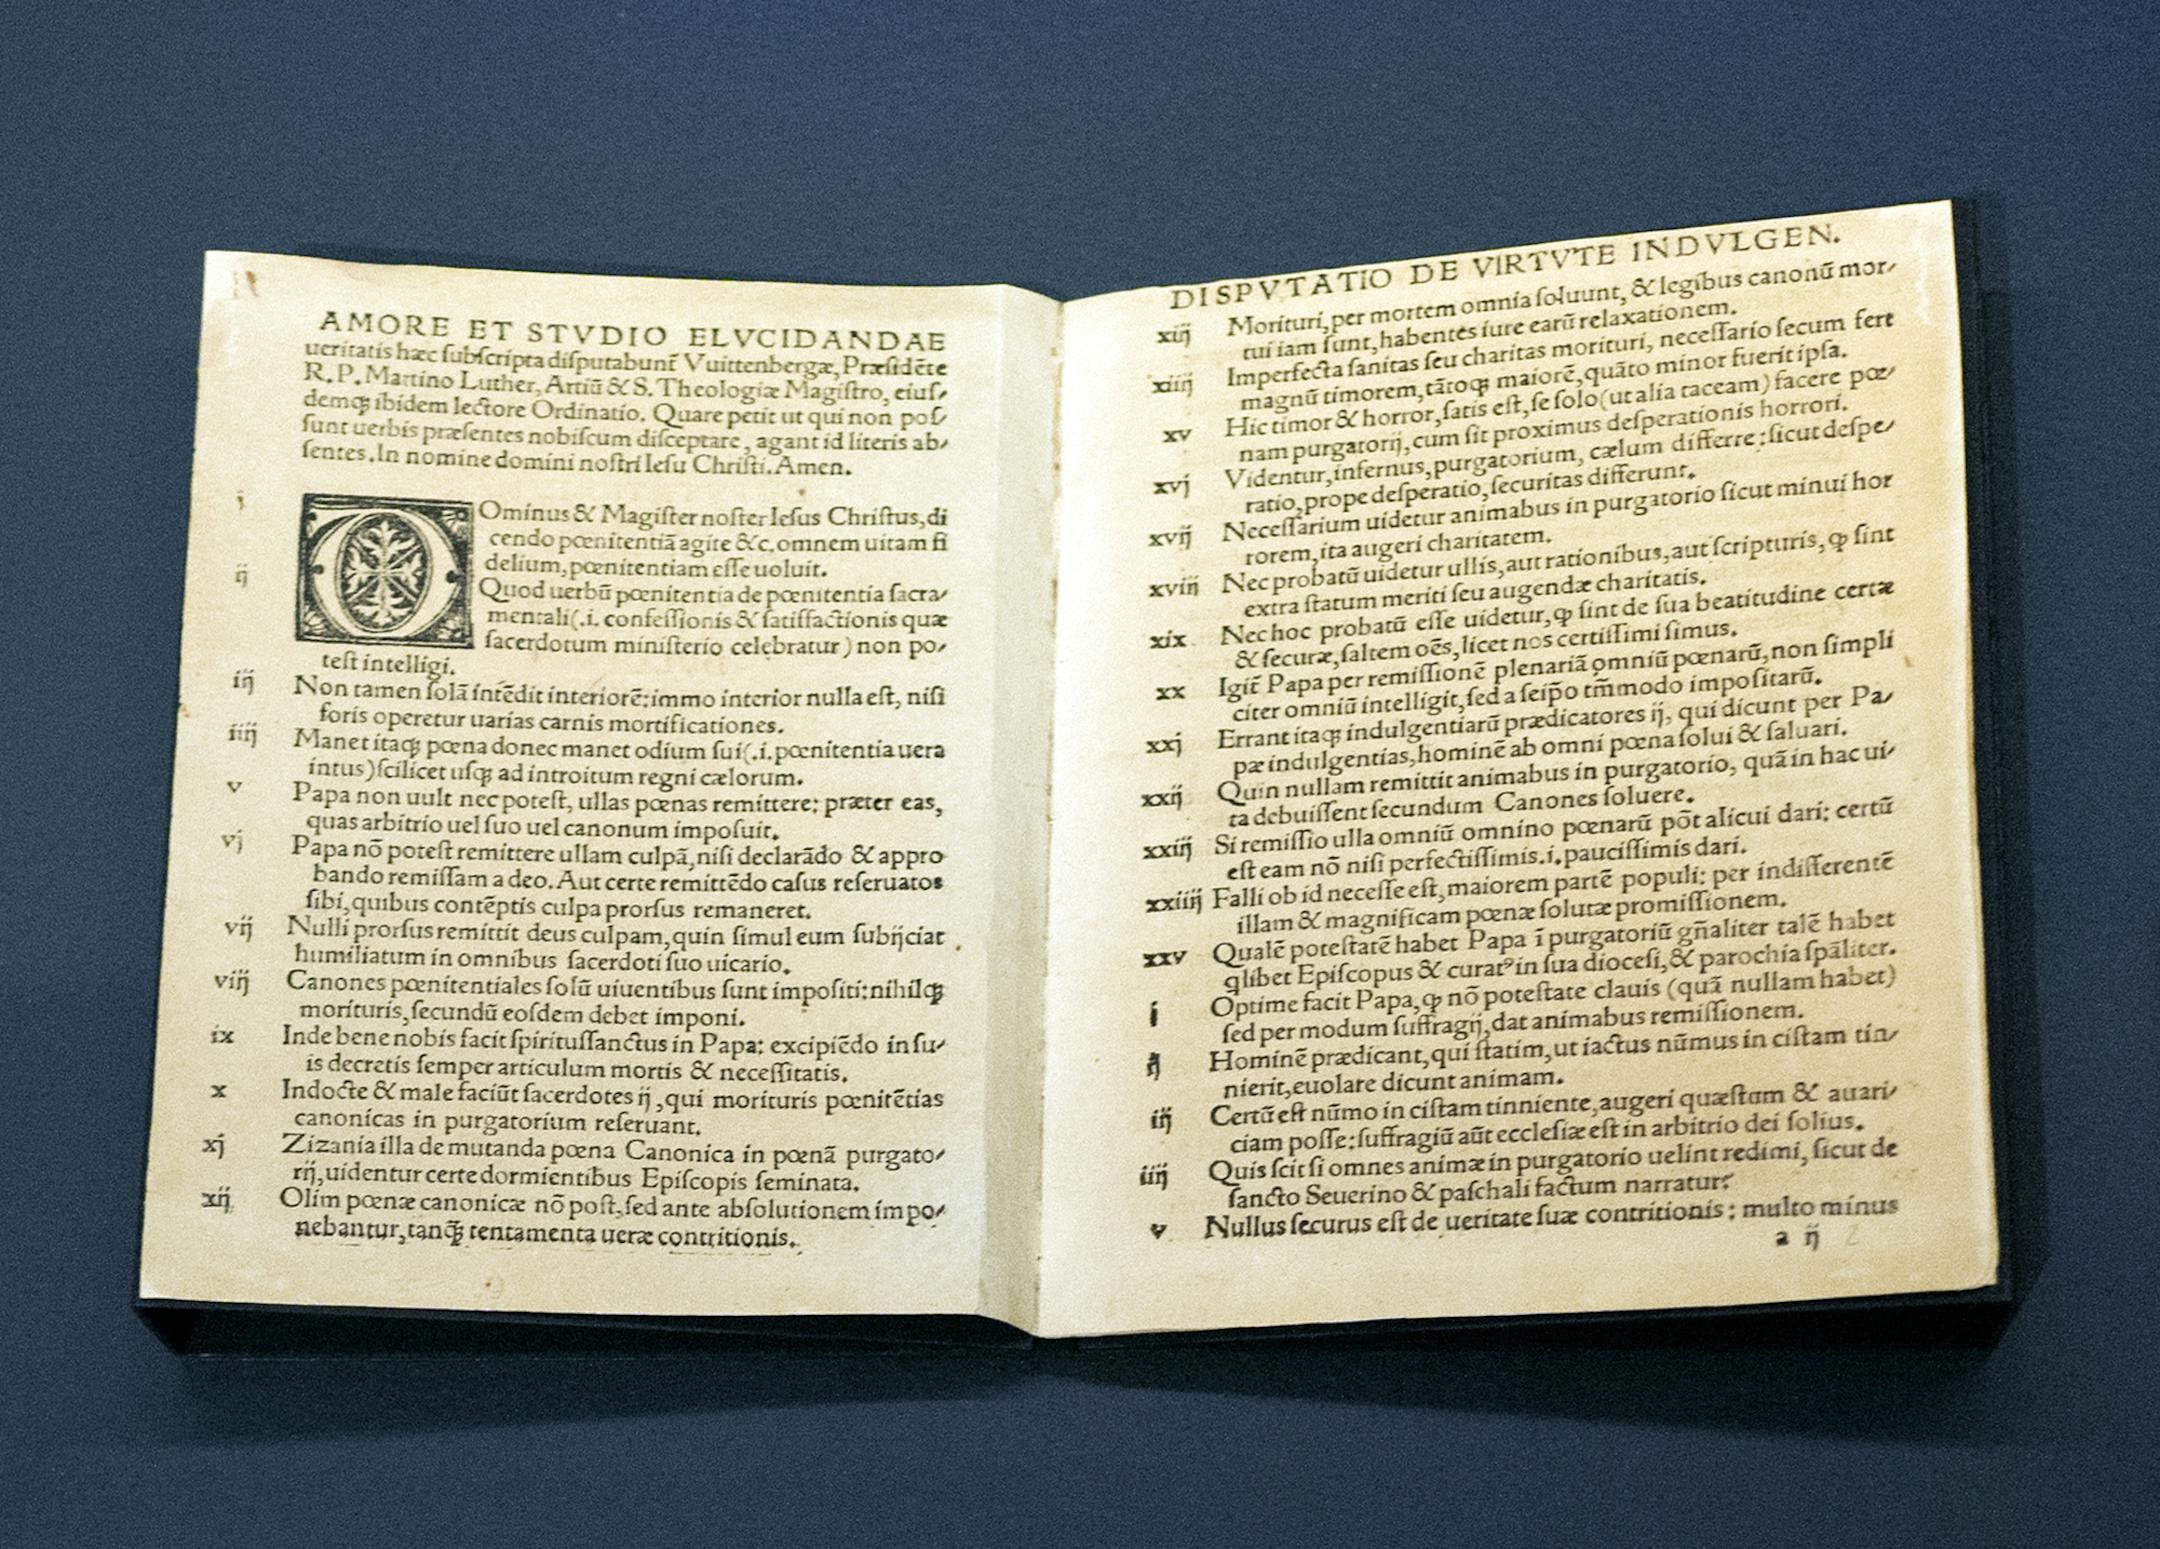 AMORE ET STVDIO ELVCIDANDAE
ueritatis hæc ſubſcripta diſputabunt̃ Vuittenbergæ, Præſidẽte
R.P. Martino Luther, Artiũ & S. Theologiæ Magiſtro, eiuſ⸗
demq́ꝫ ibidem lectore Ordinatio. Quare petit ut qui non poſ⸗
ſunt uerbis præſentes nobiſcum diſceptare, agant id literis ab⸗
ſentes. In nomine domini noſtri Ieſu Chriſti. Amen.
i DOminus & Magiſter noſter Ieſus Chriſtus, di
cendo pœnitentiã agite &c. omnem uitam fi
delium, pœnitentiam eſſe uoluit.
ij Quod uerbũ pœnitentia de pœnitentia ſacra⸗
mentali (.i. confeſſionis & ſatiſfactionis quæ
ſacerdotum miniſterio celebratur) non po⸗
teſt intelligi.
iij Non tamen ſolã intẽdit interiorẽ: immo interior nulla eſt, niſi
foris operetur uarias carnis mortificationes.
iiij Manet itaqꝫ pœna donec manet odium ſui (.i. pœnitentia uera
intus) ſcilicet uſqꝫ ad introitum regni cælorum.
v Papa non uult nec poteſt, ullas pœnas remittere: præter eas,
quas arbitrio uel ſuo uel canonum impoſuit.
vj Papa nõ poteſt remittere ullam culpã, niſi declarãdo & appro
bando remiſſam a deo. Aut certe remittẽdo caſus reſeruatos
ſibi, quibus contẽptis culpa prorſus remaneret.
vij Nulli prorſus remittit deus culpam, quin ſimul eum ſubijciat
humiliatum in omnibus ſacerdoti ſuo uicario.
viij Canones pœnitentiales ſolũ uiuentibus ſunt impoſiti: nihilqꝫ
morituris, ſecundũ eoſdem debet imponi.
ix Inde bene nobis facit ſpirituſſanctus in Papa: excipiẽdo in ſu⸗
is decretis ſemper articulum mortis & neceſſitatis.
x Indocte & male faciũt ſacerdotes ij, qui morituris pœnitẽtias
canonicas in purgatorium reſeruant.
xj Zizania illa de mutanda pœna Canonica in pœnã purgato⸗
rij, uidentur certe dormientibus Epiſcopis ſeminata.
xij Olim pœnæ canonicæ nõ poſt, ſed ante abſolutionem impo⸗
nebantur, tanqꝫ̃ tentamenta ueræ contritionis.
DISPVTATIO DE VIRTVTE INDVLGEN.
xiij Morituri, per mortem omnia ſoluunt, & legibus canonũ mor⸗
tui iam ſunt, habentes iure earũ relaxationem.
xiiij Imperfecta ſanitas ſeu charitas morituri, neceſſario ſecum fert
magnũ timorem, tãtoqꝫ maiorẽ, quãto minor fuerit ipſa.
xv Hic timor & horror, ſatis eſt, ſe ſolo (ut alia taceam) facere pœ⸗
nam purgatorij, cum ſit proximus deſperationis horrori.
xvj Videntur, infernus, purgatorium, cælum differre: ſicut deſpe⸗
ratio, prope deſperatio, ſecuritas differunt.
xvij Neceſſarium uidetur animabus in purgatorio ſicut minui hor
rorem, ita augeri charitatem.
xviij Nec probatũ uidetur ullis, aut rationibus, aut ſcripturis, ꝙ ſint
extra ſtatum meriti ſeu augendæ charitatis.
xix Nec hoc probatũ eſſe uidetur, ꝙ ſint de ſua beatitudine certæ
& ſecuræ, ſaltem oẽs, licet nos certiſſimi ſimus.
xx Igit̃ Papa per remiſſionẽ plenariã omniũ pœnarũ, non ſimpli
citer omniũ intelligit, ſed a ſeip̃o tm̃modo impoſitarũ.
xxj Errant itaqꝫ indulgentiarũ prædicatores ij, qui dicunt per Pa⸗
pæ indulgentias, hominẽ ab omni pœna ſolui & ſaluari.
xxij Quin nullam remittit animabus in purgatorio, quã in hac ui⸗
ta debuiſſent ſecundum Canones ſoluere.
xxiij Si remiſſio ulla omniũ omnino pœnarũ põt alicui dari: certũ
eſt eam nõ niſi perfectiſſimis .i. pauciſſimis dari.
xxiiij Falli ob id neceſſe eſt, maiorem partẽ populi: per indifferentẽ
illam & magnificam pœnæ ſolutæ promiſſionem.
xxv Qualẽ poteſtatẽ habet Papa ĩ purgatoriũ gñaliter talẽ habet
qlibet Epiſcopus & curatꝰ in ſua dioceſi, & parochia ſpãliter.
i Optime facit Papa, ꝙ nõ poteſtate clauis (quã nullam habet)
ſed per modum ſuffragij, dat animabus remiſſionem.
ij Hominẽ prædicant, qui ſtatim, ut iactus nũmus in ciſtam tin⸗
nierit, euolare dicunt animam.
iij Certũ eſt nũmo in ciſtam tinniente, augeri quæſtum & auari⸗
ciam poſſe: ſuffragiũ aũt eccleſiæ eſt in arbitrio dei ſolius.
iiij Quis ſcit ſi omnes animæ in purgatorio uelint redimi, ſicut de
ſancto Seuerino & paſchali factum narratur?
v Nullus ſecurus eſt de ueritate ſuæ contritionis: multo minus
a ij 2